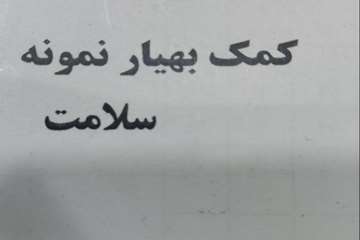 کمک بهیار نمونه
سلامت